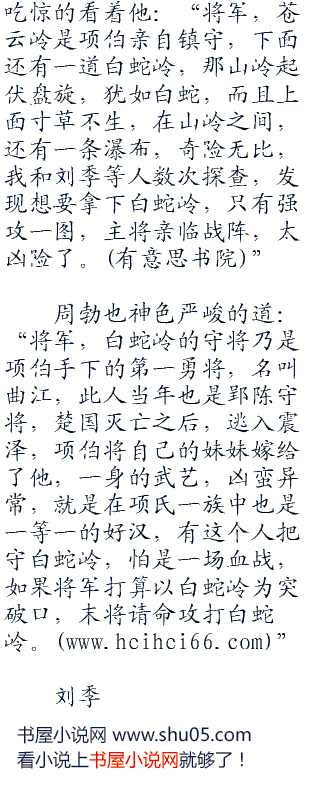 吃惊的看着他：“将军，苍
云岭是项伯亲自镇守，下面
还有一道白蛇岭，那山岭起
伏盘旋，犹如白蛇，而且上
面寸草不生，在山岭之间，
还有一条瀑布，奇险无比，
我和刘季等人数次探查，发
现想要拿下白蛇岭，只有强
攻一图，主将亲临战阵，太
凶险了。(有意思书院)”
周勃也神色严峻的道：
“将军，白蛇岭的守将乃是
项伯手下的第一勇将，名叫
曲江，此人当年也是郢陈守
将，楚国灭亡之后，逃入震
泽，项伯将自己的妹妹嫁给
了他，一身的武艺，凶蛮异
常，就是在项氏一族中也是
一等一的好汉，有这个人把
守白蛇岭，怕是一场血战，
如果将军打算以白蛇岭为突
破口，末将请命攻打白蛇
岭。(www.hcihci66.com)”
刘季
书屋小说网 www.shu05.com
看小说上书屋小说网就够了！